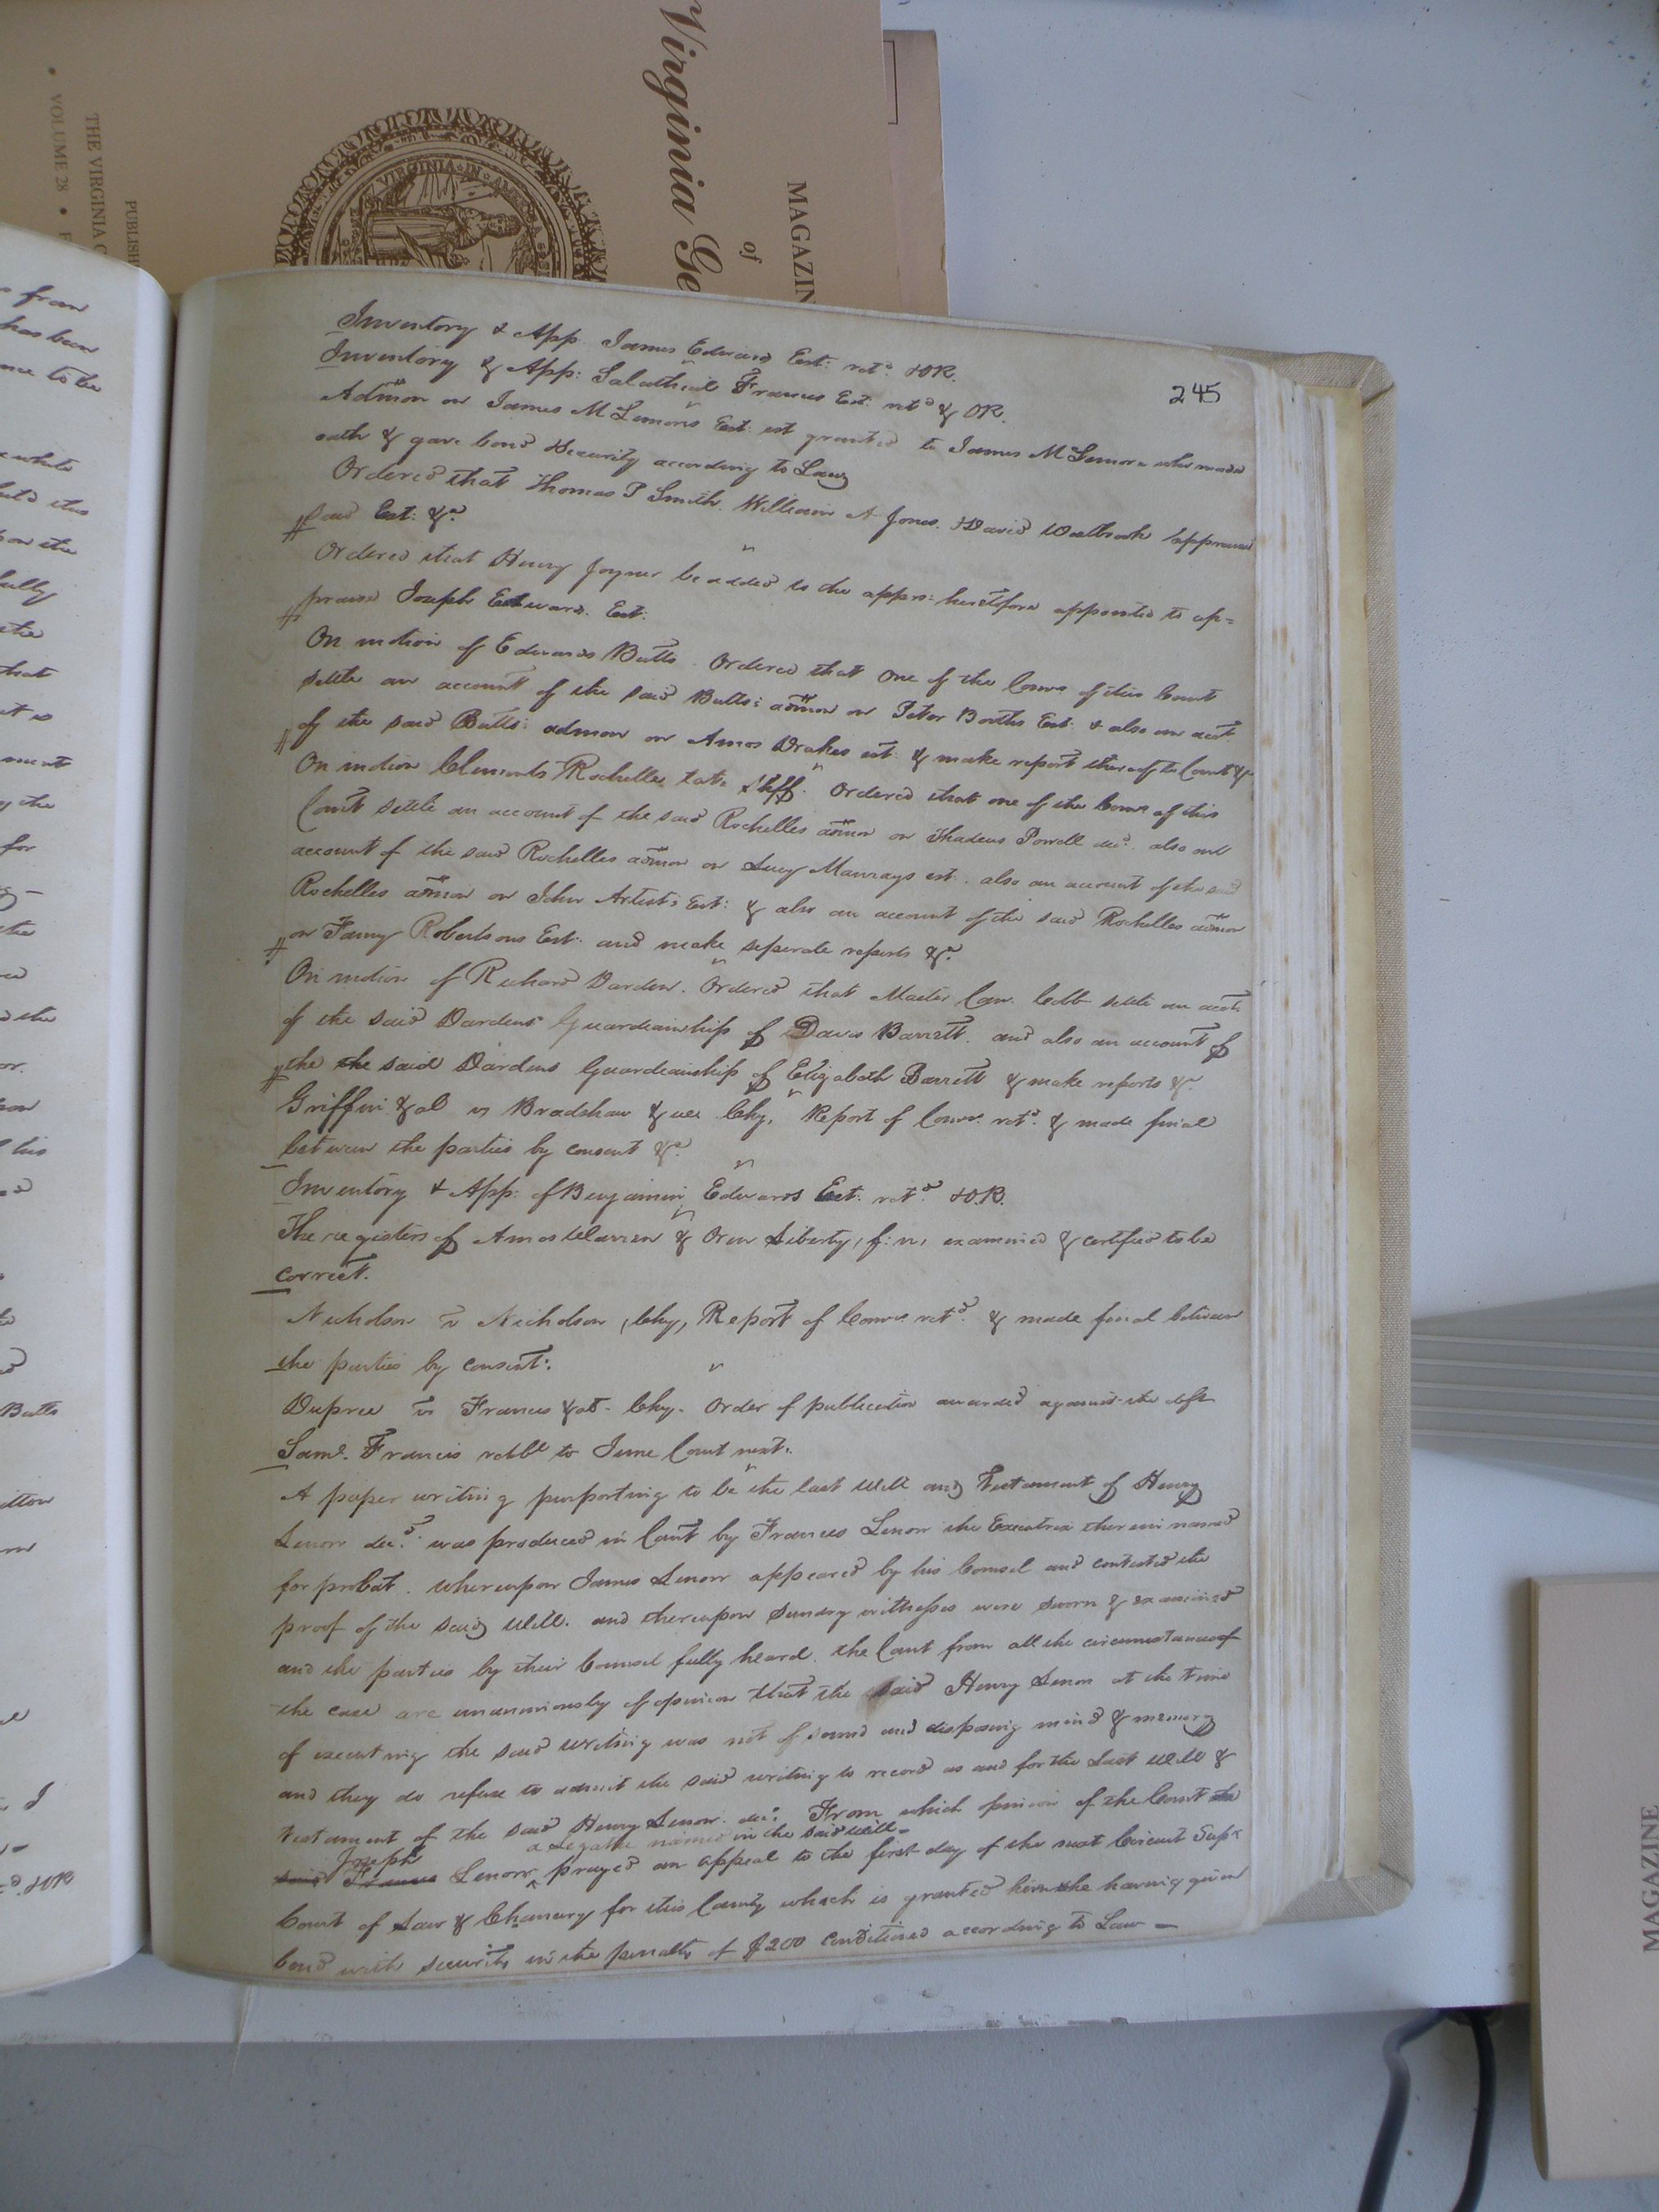 Virginia Ge
MAGAZIN
of
VIRGINIA IN AM
PUBLISH
THE VIRGINIA
VOLUME 28
MAGAZINE
from
has been
me to be
Butts
245
Inventory & App. James Edwards Est: retd. &OR.
Inventory & App: Salathiel Francis Est: retd & OR.
Admon on James M Lemons Est: est granted to James M Lemore who made
oath & gave bond &security according to Law
Ordered that Thomas P Smith. William A Jones. &David Westbrook appraise
said Est: &a.
Ordered that Henry Joyner be added to the apprs: heretofore appointed to ap=
praise Joseph Edwards. Est:
On motion of Edwards Butts. Ordered that one of the Comrs of this Court
settle an account of the said Butts: admon on Peter Booths Est: & also an acct.
of the said Butts: admon on Amos Drakes est: & make report thereof to Court &c
On motion Clements Rochelle, late Shff. Ordered that one of the Comrs of this
Court settle an account of the said Rochelles admon on Thadeus Powell decd. also an
account of the said Rochelles admon on Lucy Manrays est. also an account of the said
Rochelles admon on John Artists Est: & also an account of the said Rochelles admon
on Fanny Robertsons Est: and make seperate reports &a.
On motion of Richard Darden. Ordered that Master Com. Cobb settle an acct.
of the said Dardens Guardianship of Davis Barrett. and also an account of
the the said Dardens Guardianship of Elizabeth Barrett & make reports &a.
Griffin &al vs Bradshaw & ux Chy, Report of Comr. retd. & made final
between the parties by consent &a.
Inventory & App: of Benjamin Edwards Est: retd. &OR.
The registers of Amos Warren & Orin Liberty, f: n, examined & certified to be
correct.
Nicholson vs Nicholson, Chy, Report of Comr retd. & made final between
the parties by consent:.
Dupree vs Francis &al- Chy. Order of publication awarded against the deft
Saml. Francis retbl to June Court next.
A paper writing purporting to be the last Will and Testament of Henry
Lenow decd. was produced in Court by Frances Lenow the Executrix therein named
for probat. whereupon James Lenow appeared by his Counsel and contested the
proof of the said Will. and thereupon sundry witnesses were sworn & examined
and the parties by their Counsel fully heard. the Court from all the circumstances of
the case are unanimously of opinion that the said Henry Lenow at the time
of executing the said writing was not of sound and disposing mind & memory
and they do refuse to admit the said writing to record as and for the Last Will &
testament of the said Henry Lenow decd. From which opinion of the Court the
Joseph a Legatee named in the said will-
said Frances Lenow prayed an appeal to the first day of the next Circuit Supr
Court of Law & Chancery for this County which is granted him he having given
bond with security in the penalty of $200 conditioned according to Law-